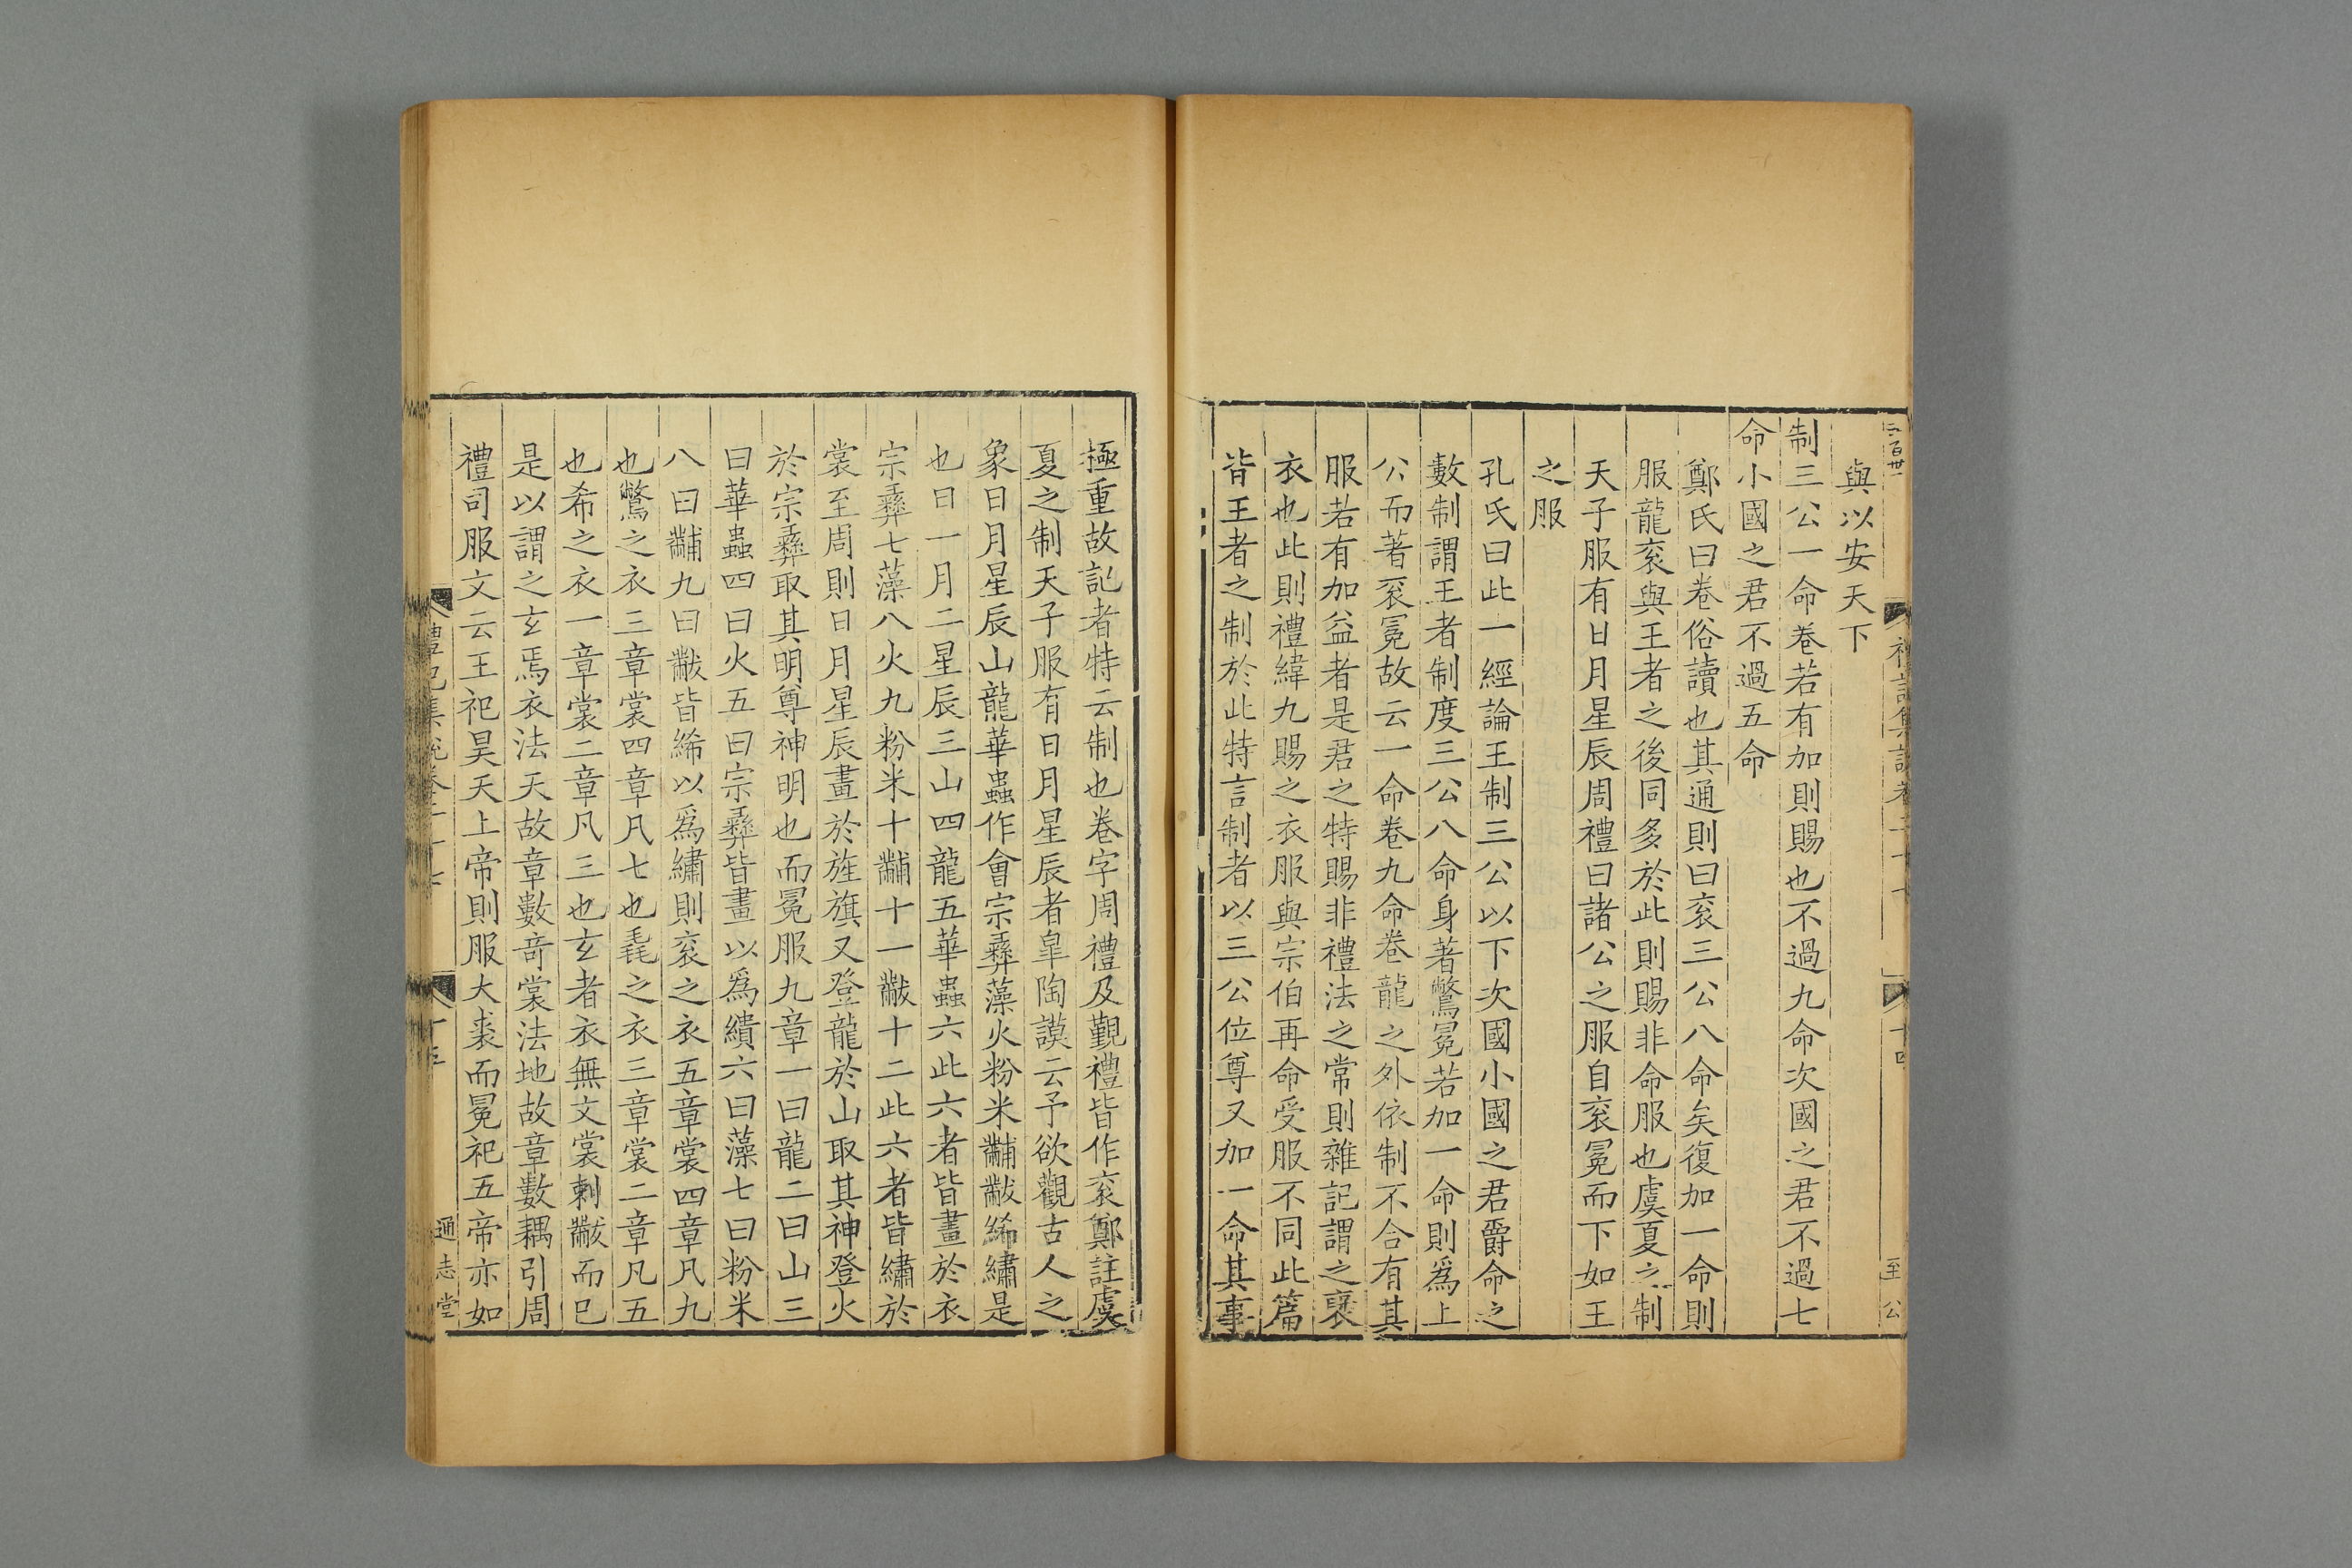 與以安天下
制三公一命卷若有加則賜也不過九命次國之君不過七
命小國之君不過五命
鄭氏曰卷俗讀也其通則曰衮三公八命矣復加一命則
服龍衮與王者之後同多於此則賜非命服也虞夏之制
天子服有日月星辰周禮曰諸公之服自衮冕而下如王
之服
孔氏曰此一經論王制三公以下次國小國之君爵命之
數制謂王者制度三公八命身著鷩冕若加一命則爲上
公而著衮冕故云一命卷九命卷龍之外依制不合有其
服若有加益者是君之特賜非禮法之常則雜記謂之襃
衣也此則禮緯九賜之衣服與宗伯再命受服不同此篇
皆王者之制於此特言制者以三公位尊又加一命其事
極重故記者特云制也卷字周禮及覲禮皆作衮鄭註虞
夏之制天子服有日月星辰者皐陶謨云予欲觀古人之
象日月星辰山龍華蟲作會宗彝藻火粉米黼黻絺繡是
也日一月二星辰三山四龍五華蟲六此六者皆畫於衣
宗彝七藻八火九粉米十黼十一黻十二此六者皆繡於
裳至周則日月星辰畫於旌旗又登龍於山取其神登火
於宗彝取其明尊神明也而冕服九章一曰龍二曰山三
曰華蟲四曰火五曰宗彝皆畫以爲繢六曰藻七曰粉米
八曰黼九曰黻皆絺以爲繡則衮之衣五章裳四章凡九
也鷩之衣三章裳四章凡七也毳之衣三章裳二章凡五
也希之衣一章裳二章凡三也玄者衣無文裳刺黻而已
是以謂之玄焉衣法天故章數竒裳法地故章數耦引周
禮司服文云王祀昊天上帝則服大裘而冕祀五帝亦如
禮記集說卷二十七
十五
通志堂